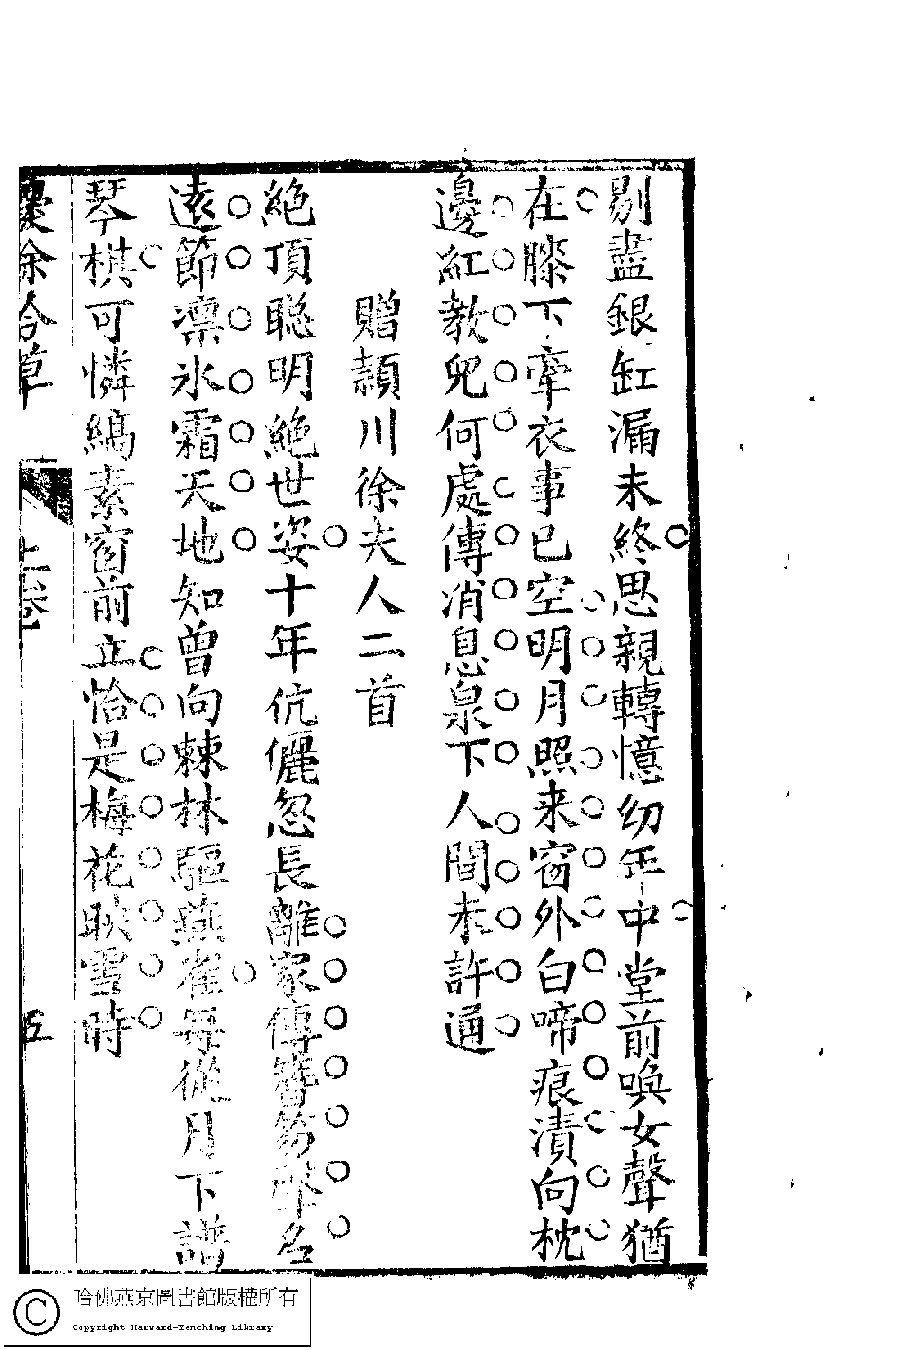 剔盡銀缸漏未終思親轉憶幼年中堂前喚女聲猶
在膝下牽衣事已空明月照来窗外白啼痕漬向枕
邊紅教兒何處傳消息泉下人間未許通
贈頴川徐夫人二首
絶頂聡明絶世姿十年伉儷忽長離家傳簪笏聲名
遠節凛氷霜天地知曾向棘林驅燕雀每從月下譜
琴棋可憐縞素窗前立恰是梅花映雪時
餘合草
上卷
五
哈佛燕京圖書館版權所有
Copyright Harvard-Yenching Library